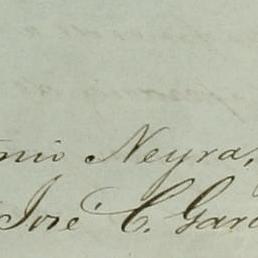 nio Neyra,
José C. Gar